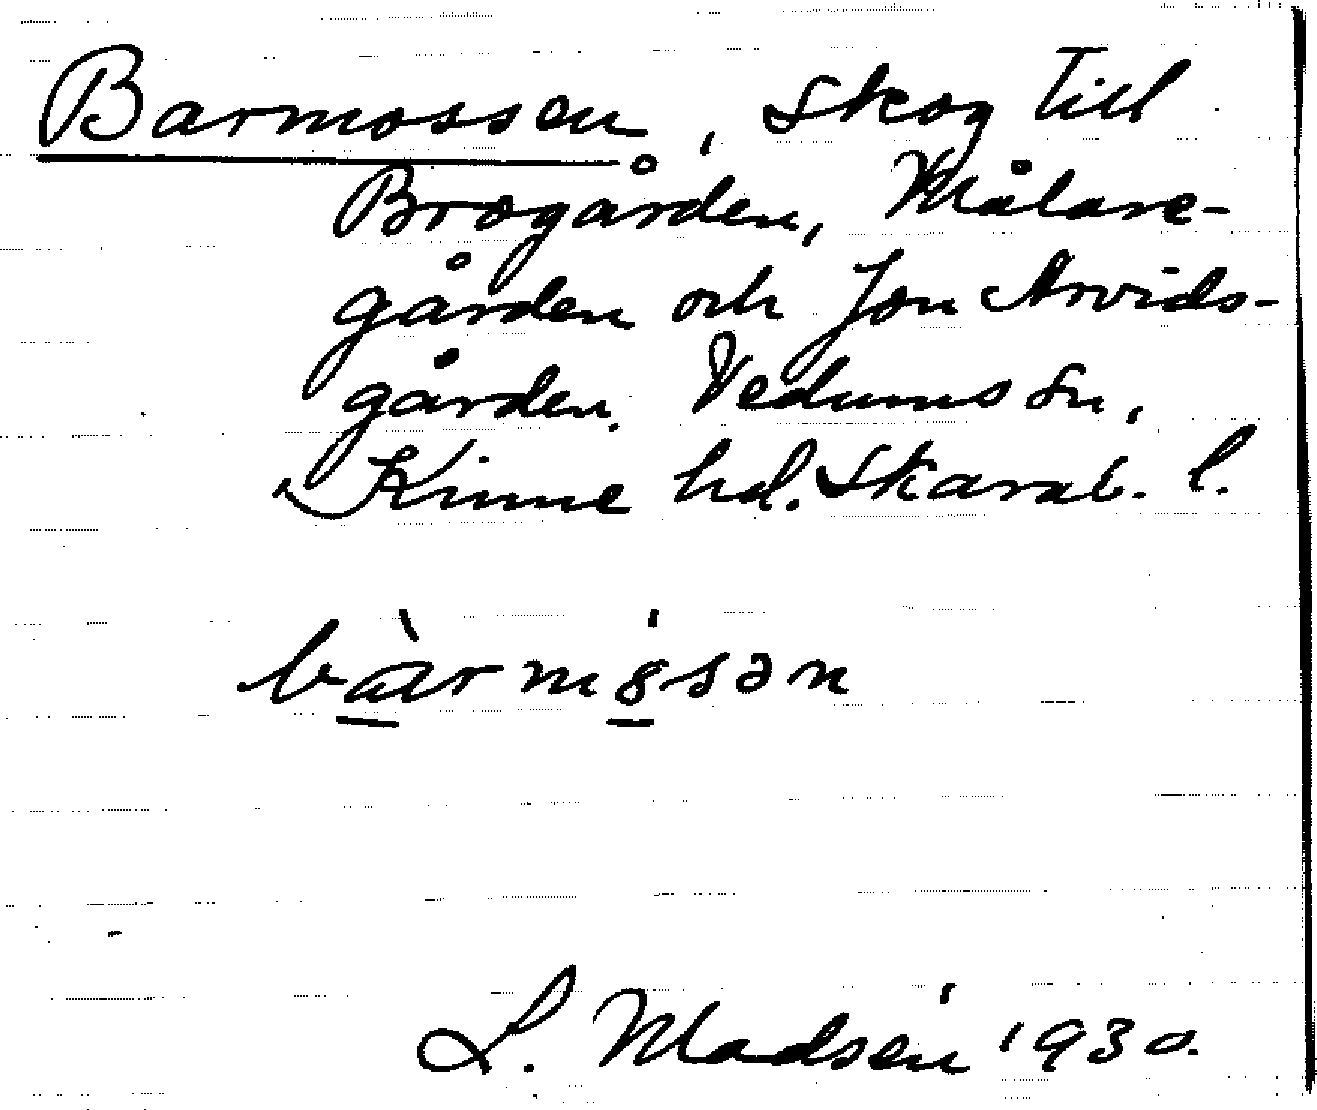 Barmossen, skog till
Brogården, Målare-
gården och Jon Arvids-
gården. Vedums sn,
Kinne hd. Skarab. l.
bàrmósən
L. Madsén 1930.